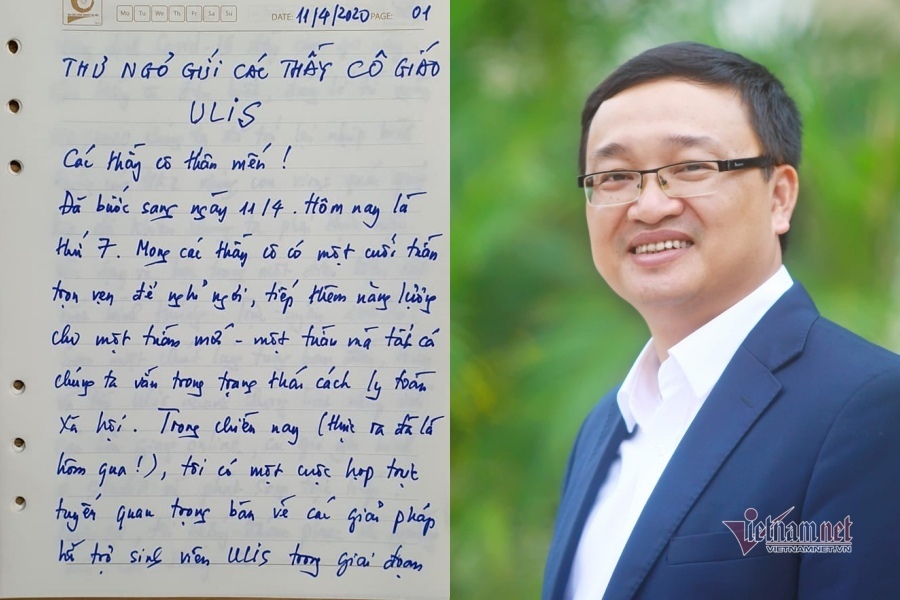 Mo Tu We Th Fr Sa Su
DATE: 11/4/2020 PAGE: 01
THƯ NGỎ GỬI CÁC THẦY CÔ GIÁO
ULIS
Các thầy cô thân mến !
Đã bước sang ngày 11/4. Hôm nay là
thứ 7. Mong các thầy cô có một cuối tuần
trọn vẹn để nghỉ ngơi, tiếp thêm năng lượng
cho một tuần mới - một tuần mà tất cả
chúng ta vẫn trong trạng thái cách ly toàn
xã hội. Trong chiều nay (thực ra đã là
hôm qua !), tôi có một cuộc họp trực
tuyến quan trọng bàn về các giải pháp
hỗ trợ sinh viên ULIS trong giai đoạn
Vietnamnet
VIETNAMNET.VN